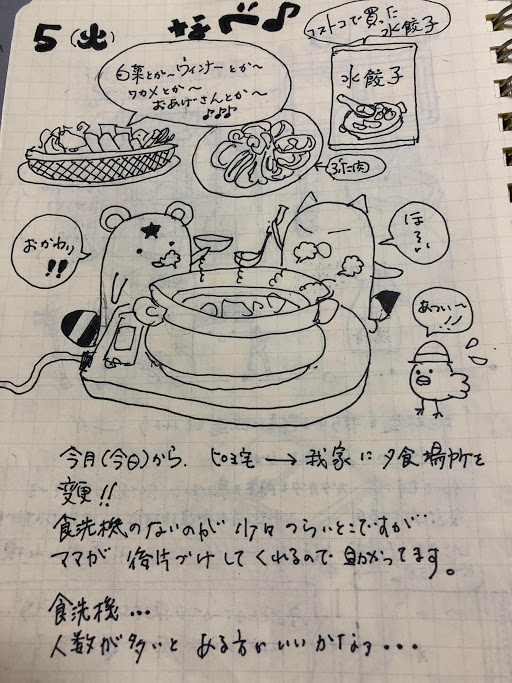 5(火)
なべ♪
コストコで買った
水餃子
白菜とか〜ウィンナーとか〜
ワカメとか〜
おあげさんとか〜
♪♪♪
水餃子
ぶた肉
おかわり
!!
ほい
あつい〜
!!
今月(今日)から、ピヨ宅→我家に夕食場所を
変更!!
食洗機のないのが少々つらいとこですが
ママが後片づけしてくれるので助かってます。
食洗機...
人数が多いとある方がいいかなぁ...